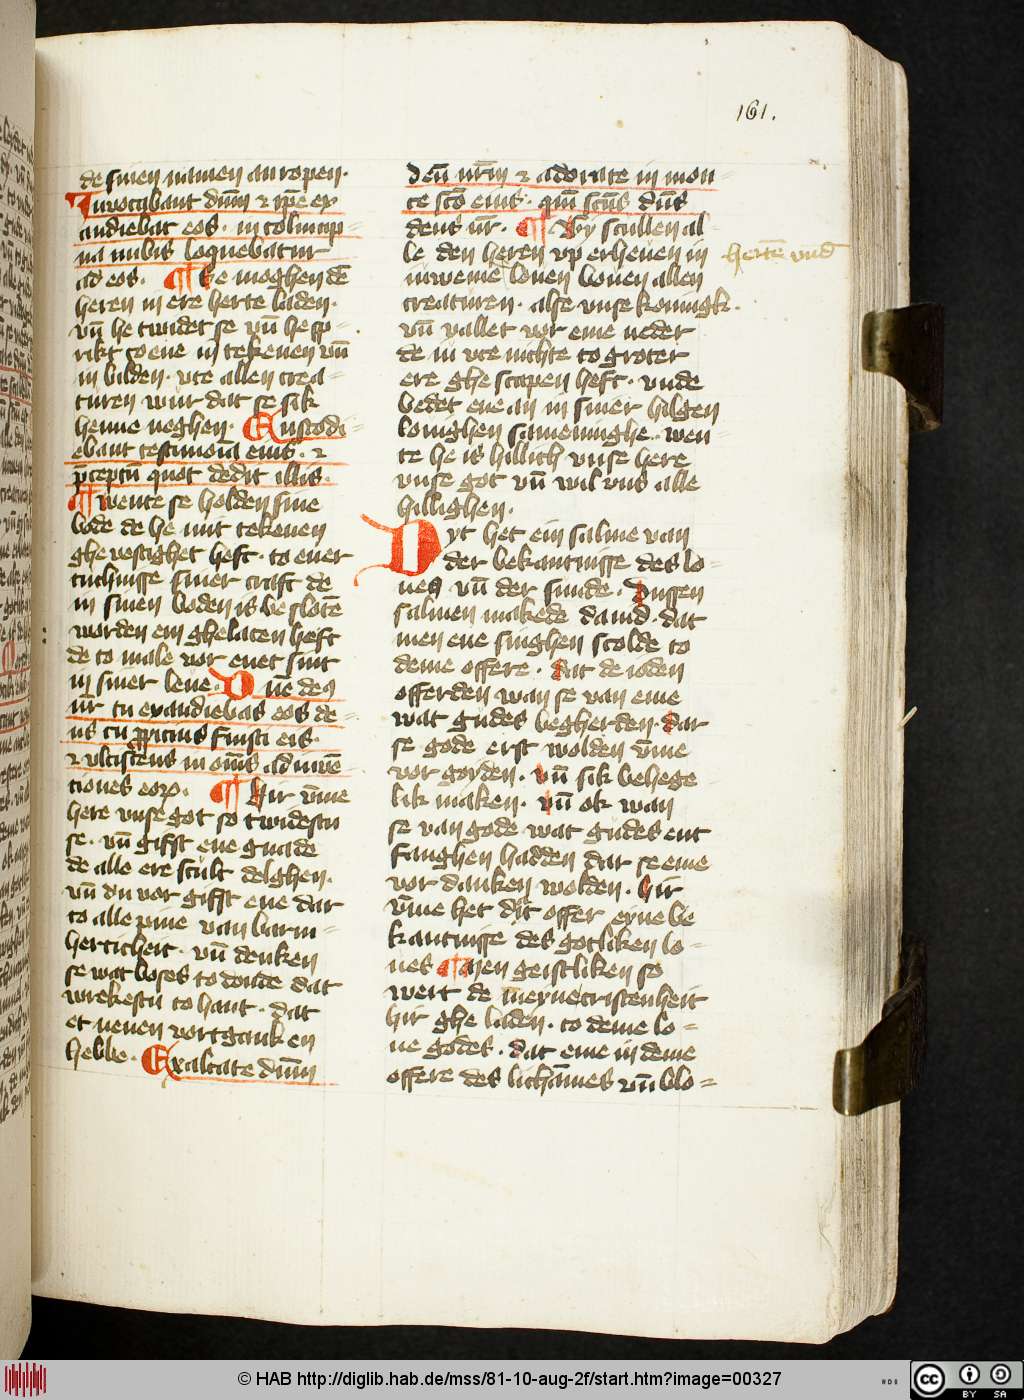 161.
de sinen namen an ropen.
Invocabant dnm̄ ⁊ ip̄e ex
audiebat eos. in colump-
na nubis loquebatur
ad eos. ¶ Se moghen dē
heren in ere herte laden.
vn̄ he twidet se vn̄ he sp-
rikt to ene in tekenen vn̄
in bilden. vte allen crea-
turen wur dat se sik
henne neghen. Custodi-
ebant testimoīa eius. ⁊
p̄ceptū quot dedit illis.
¶ wente se holden sine
bode de he mit tekenen
ghe vestighet heft. to ener
tuchnisse siner craft de
in sinen boden is be slotē
worden ein ghelaten heft
de to male vor enet sint
in siner leue. Dn̄e deꝯ
nr̄ tu exaudiebas eos de-
us tu ꝓpicius fuisti eis.
⁊ vlciscens in om̄s ad inue-
tiones eoꝝ. ¶ Hir v̄me
here vnse got so twidestu
se. vn̄ gifst ene gnade
de alle ere scult delghen.
vn̄ du vor gifft ene dar
to alle pine van barm-
herticheit. vn̄ denken
se wat boses to donde dat
wrekestu to hant. dat
et nenen vortgank en
hebbe. Exaltate dnm̄
deū nr̄m ⁊ adorate in mon-
te scō eius. qm̄ scūs dn̄s
deus nr̄. ¶ Wy scullen al-
le den heren vp erheuen in
herte vnd
inweme louen bouen allen
creaturen. alse vnse konnigk.
vn̄ vallet vor eme neder
de in vte nichte to groter
ere ghe scapen heft. vnde
bedet ene an in siner hilgen
loninghen sameninghe. wen-
te he is hillich vnse here
vnse got vn̄ wil vns alle
hillighen.
Dyt het ein salme van
der bekantnisse des lo-
ues vn̄ der sunde. Dussen
salmen makede dauid. dat
men ene singhen scolde to
deme offere. dat de ioden
offerden wan se van eme
wat gudes begherden. dar
se gode erst wolden v̄me
vn̄ sik behege
lik maken. vn̄ ok wan
se van gode wat gudes ent
fanghen hadden dar se eme
vor danken wolden. hir
v̄me het dit offer eyne be
kantnisse des gotliken lo-
ues ¶ Men geistliken so
wert de meyne cristenheit
hir ghe laden. to deme lo-
ue godes. dat eme in deme
offere des lichāmes vn̄ blo-
© HAB http://diglib.hab.de/mss/81-10-aug-2f/start.htm?image=00327
HAB
cc BY SA